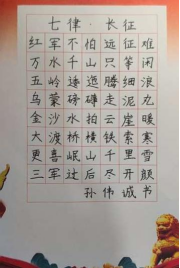 七律·长征
红军不怕远征难
万水千山只等闲
五岭逶迤腾细浪
乌蒙磅礴走泥丸
金沙水拍云崖暖
大渡桥横铁索寒
更喜岷山千里雪
三军过后尽开颜
孙伟诚书